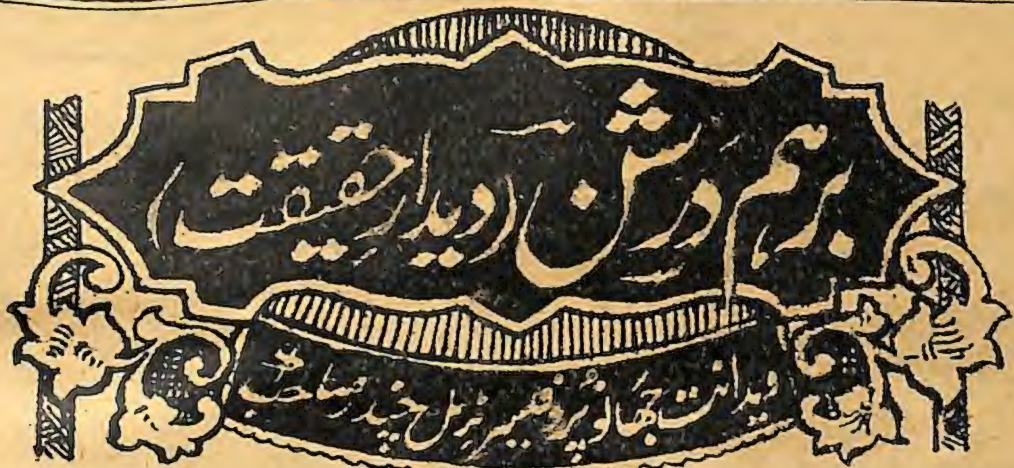 برہم دَرشن (دیدارِ حقیقت)
ویدانت بھانو پُروفیسر نرمل چندر صاحب